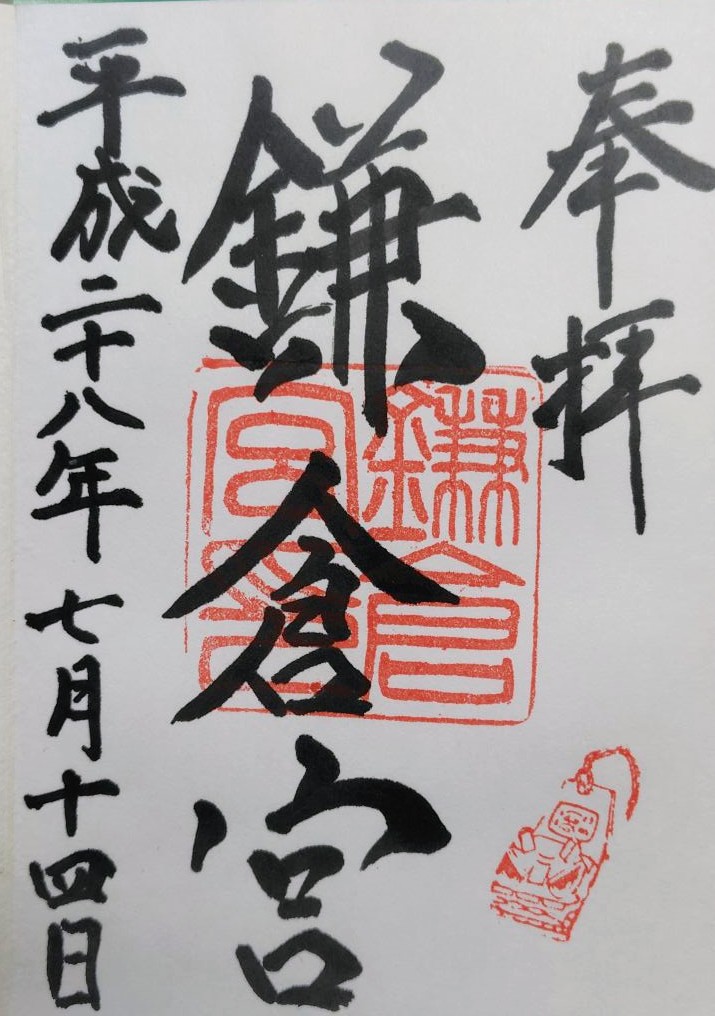 奉拝
鎌倉宮
鎌倉宮印
平成二十八年七月十四日